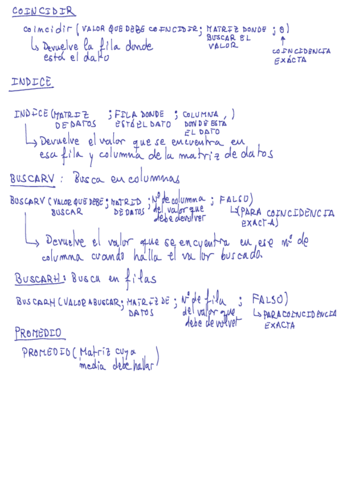 COINCIDIR
coincidir (VALOR QUE DEBE COINCIDIR ; MATRIZ DONDE ; 0)
BUSCAR EL
VALOR
↳ Devuelve la fila donde
está el dato
COINCIDENCIA
EXACTA
INDICE
INDICE (MATRIZ ; FILA DONDE ; COLUMNA )
DE DATOS ESTÁ EL DATO DONDE ESTA
EL DATO
↳ Devuelve el valor que se encuentra en
esa fila y columna de la matriz de datos
BUSCARV : Busca en columnas
BUSCARV (VALOR QUE DEBE ; MATRIZ ; Nº de columna ; FALSO)
BUSCAR DE DATOS del valor que
debe devolver
↳ (PARA COINCIDENCIA
EXACTA)
↳ Devuelve el valor que se encuentra en ese nº de
columna cuando halla el valor buscado
BUSCARH : Busca en filas
BUSCARH (VALOR A BUSCAR ; MATRIZ DE ; Nº de fila ; FALSO)
DATOS del valor que
debe devolver
↳ PARA COINCIDENCIA
EXACTA
PROMEDIO
PROMEDIO (Matriz cuya
media debe hallar)